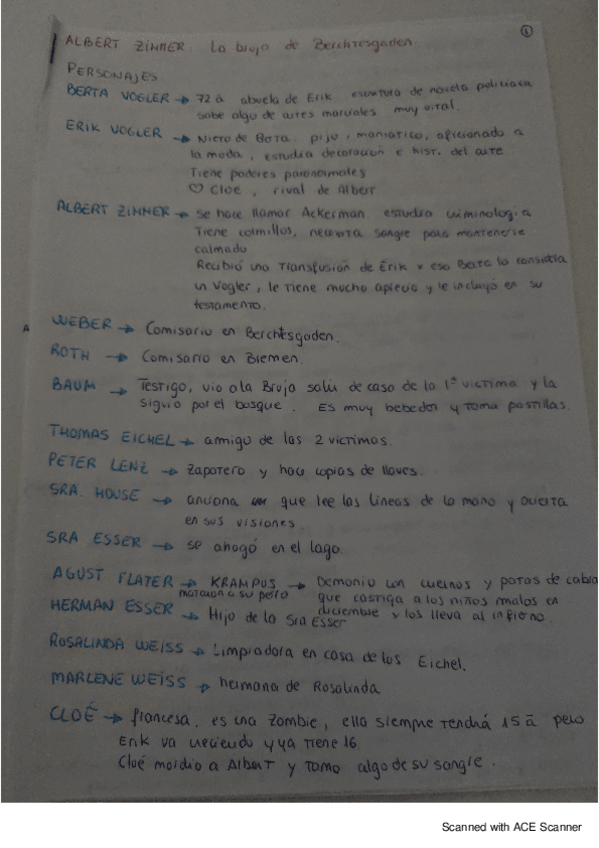 ①
ALBERT ZIMMER: La bruja de Berchtesgaden
PERSONAJES
BERTA VOGLER → 72 ā abuela de Erik escritora de novela policiaca
sabe algo de artes marciales muy vital.
ERIK VOGLER → Nieto de Berta. pijo, maniatico, aficionado a
la moda, estudia decoracion e hist. del arte
Tiene poderes paranormales
♡ Cloe, rival de Albert
ALBERT ZIMMER → se hace llamar Ackerman estudia criminologia
Tiene colmillos, necesita sangre para mantenerse
calmado
Recibió una Transfusión de Erik x eso Berta lo considera
un Vogler, le tiene mucho aprecio y le incluyó en su
testamento.
WEBER → Comisario en Berchtesgaden.
ROTH → Comisario en Bremen.
BAUM → Testigo, vio a la Bruja salir de casa de la 1ª victima y la
siguio por el bosque. Es muy bebedor y toma pastillas.
THOMAS EICHEL → amigo de las 2 victimas.
PETER LENZ → Zapatero y hace copias de llaves.
SRA. HOUSE → anciana que lee las lineas de la mano y acierta
en sus visiones.
SRA ESSER → se ahogó en el lago.
AGUST FLATER → KRAMPUS → Demonio con cuernos y patas de cabra
mataron a su perro que castiga a los niños malos en
HERMAN ESSER → Hijo de la Sra Esser diciembre y los lleva al infierno.
ROSALINDA WEISS → Limpiadora en casa de los Eichel.
MARLENE WEISS → hermana de Rosalinda
CLOÉ → francesa. es una Zombie, ella siempre Tendrá 15 ā pero
Erik va creciendo y ya Tiene 16.
Cloé mordio a Albert y Tomo algo de su sangre.
Scanned with ACE Scanner